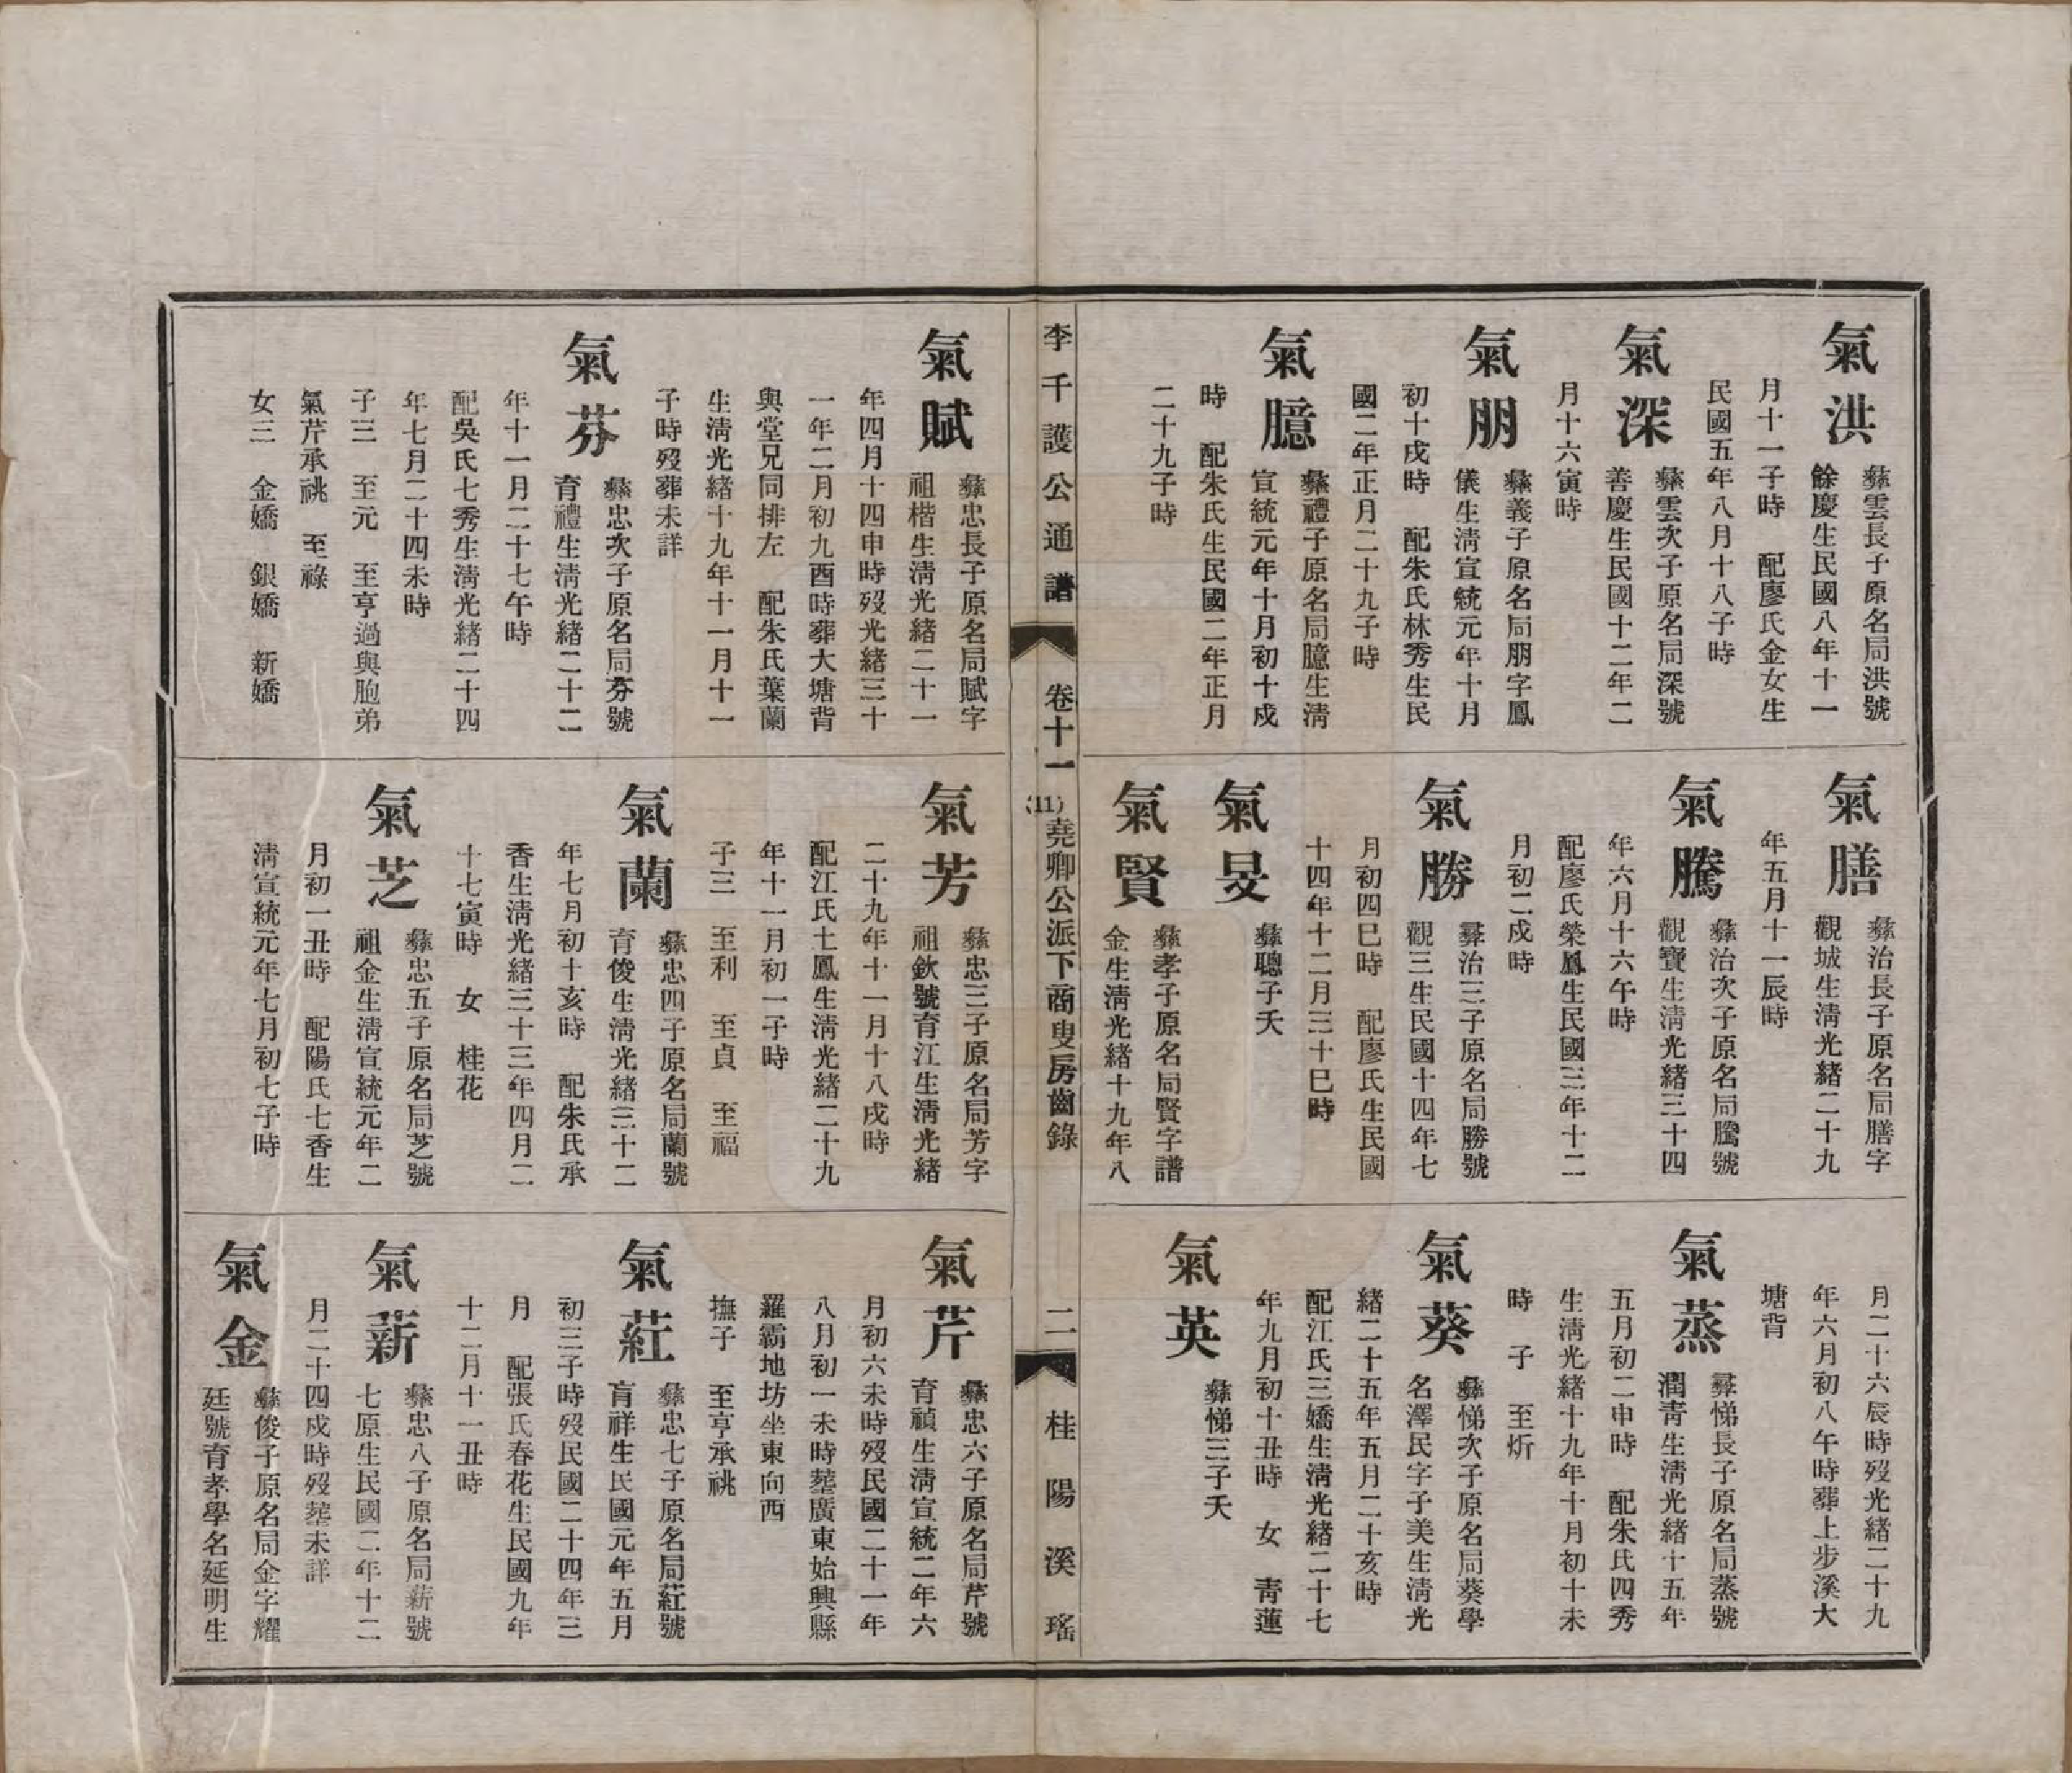 氣洪
彝雲長子原名局洪號
餘慶生民國八年十一
月十一子時　配廖氏金女生
民國五年八月十八子時
氣深
彝雲次子原名局深號
善慶生民國十二年二
月十六寅時
氣朋
彝義子原名局朋字鳳
儀生淸宣統元年十月
初十戌時　配朱氏林秀生民
國二年正月二十九子時
氣臆
彝禮子原名局臆生淸
宣統元年十月初十戌
時　配朱氏生民國二年正月
二十九子時
氣膳
彝治長子原名局膳字
觀城生淸光緒二十九
年五月十一辰時
氣騰
彝治次子原名局騰號
觀寶生淸光緒三十四
年六月十六午時
配廖氏榮鳳生民國三年十二
月初二戌時
氣勝
彝治三子原名局勝號
觀三生民國十四年七
月初四巳時　配廖氏生民國
十四年十二月三十巳時
氣旻
彝聰子夭
氣賢
彝孝子原名局賢字譜
金生淸光緒十九年八
月二十六辰時歿光緒二十九
年六月初八午時葬上步溪大
塘背
氣蒸
彝悌長子原名局蒸號
潤靑生淸光緒十五年
五月初二申時　配朱氏四秀
生淸光緒十九年十月初十未
時　子　至炘
氣葵
彝悌次子原名局葵學
名澤民字子美生淸光
緒二十五年五月二十亥時
配江氏三嬌生淸光緒二十七
年九月初十丑時　女　靑蓮
氣英
彝悌三子夭
李千護公通譜
卷十一
(11)
堯卿公派下商叟房齒錄
二
桂陽溪瑤
氣賦
彝忠長子原名局賦字
祖楷生淸光緒二十一
年四月十四申時歿光緒三十
一年二月初九酉時葬大塘背
與堂兄同排左　配朱氏葉蘭
生淸光緒十九年十一月十一
子時歿葬未詳
氣芬
彝忠次子原名局芬號
育禮生淸光緒二十二
年十一月二十七午時
配吳氏七秀生淸光緒二十四
年七月二十四未時
子三　至元　至亨過與胞弟
氣芹承祧　至祿
女三　金嬌　銀嬌　新嬌
氣芳
彝忠三子原名局芳字
祖欽號育江生淸光緒
二十九年十一月十八戌時
配江氏七鳳生淸光緒二十九
年十一月初一子時
子三　至利　至貞　至福
氣蘭
彝忠四子原名局蘭號
育俊生淸光緒三十二
年七月初十亥時　配朱氏承
香生淸光緒三十三年四月二
十七寅時　女　桂花
氣芝
彝忠五子原名局芝號
祖金生淸宣統元年二
月初一丑時　配陽氏七香生
淸宣統元年七月初七子時
氣芹
彝忠六子原名局芹號
育禎生淸宣統二年六
月初六未時歿民國二十一年
八月初一未時塟廣東始興縣
羅霸地坊坐東向西
撫子　至亨承祧
氣葒
彝忠七子原名局葒號
育祥生民國元年五月
初三子時歿民國二十四年三
月　配張氏春花生民國九年
十二月十一丑時
氣薪
彝忠八子原名局薪號
七原生民國二年十二
月二十四戌時歿塟未詳
氣金
彝俊子原名局金字耀
廷號育孝學名延明生